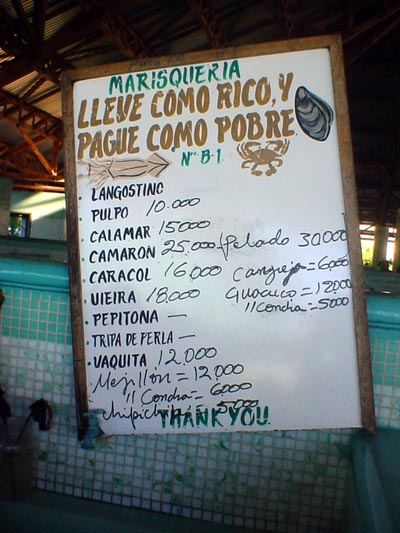 MARISQUERIA
LLEVE COMO RICO, Y
PAGUE COMO POBRE
Nº B-1
LANGOSTINO
PULPO 10.000
CALAMAR 15000
CAMARON 25.000 Pelado 30000
CARACOL 16000 Cangrejo = 6000
VIEIRA 18.000 Guacuco = 12000
PEPITONA — " Concha = 5000
TRIPA DE PERLA —
VAQUITA 12.000
Mejillón = 12.000
" Concha = 6000
chipichipi = 5.000
THANK YOU